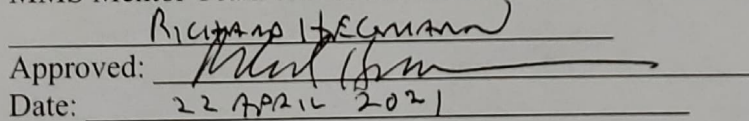 RICHARD HEGMANN
Approved:
Date: 22 APRIL 2021